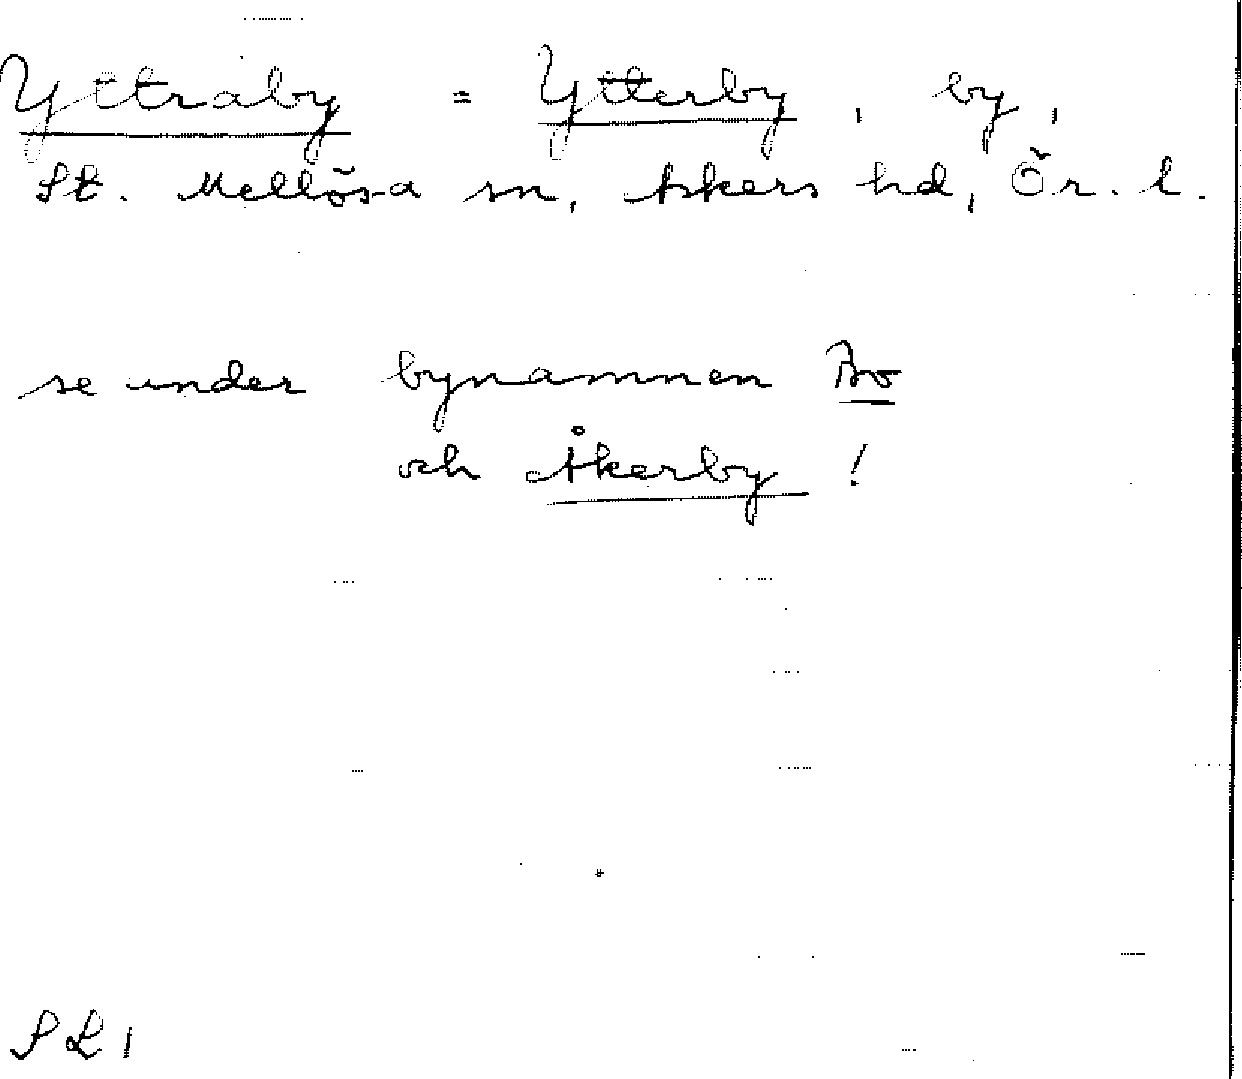 Yttraby = Ytterby, by,
St. Mellösa sn, Askers hd, Ör. l.
se under bynamnen Bo
och Åkerby!